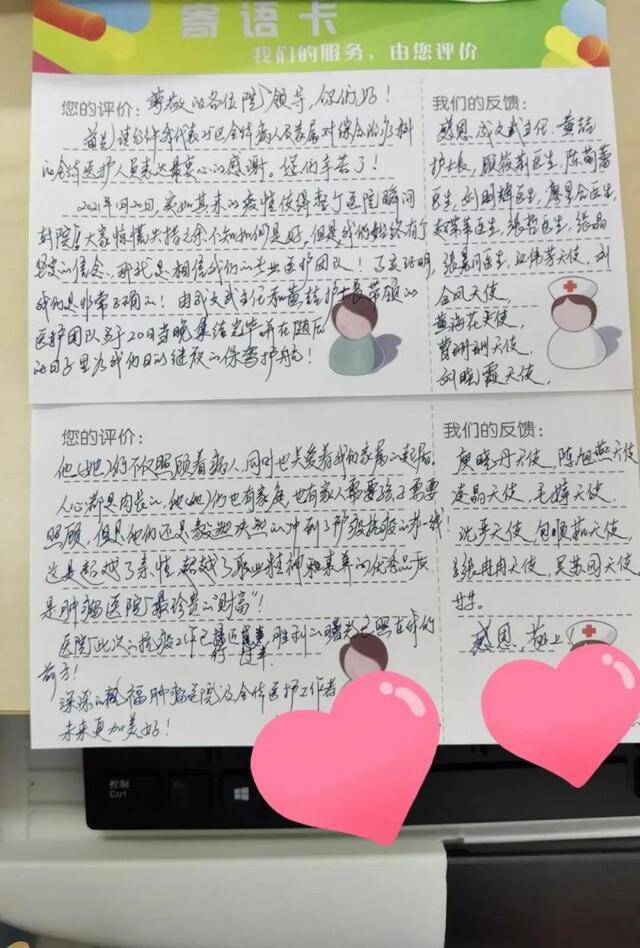 寄语卡
我们的服务，由您评价
您的评价：尊敬的各位院领导，你们好！
首先请允许我代表12区全体病人及家属对综合治疗科
的全体医护人员表达最衷心的感谢。您们辛苦了！
2021年1月20日，突如其来的疫情使得整个医院瞬间
封院，大家惊慌失措之余不知如何是好，但是我们始终有个
坚定的信念，那就是相信我们的专业医护团队！事实证明，
我们是非常正确的！由成文武主任和黄喆护士长带领的
医护团队于20日当晚集结完毕并在随后
的日子里为我们日以继夜的保驾护航！
我们的反馈：
感恩 成文武主任、黄喆
护士长、顾筱莉医生、陈萌蕾
医生、刘明辉医生、廖里会医生、
赵苹苹医生、张哲医生、张晶
医生、江伟芳天使、刘
金凤天使、
黄海花天使、
曹琳琳天使、
刘晓霞天使、
您的评价：
他(她)们不仅照顾着病人，同时也关爱着我们家属的起居。
人心都是肉长的，他(她)们也有家庭，也有家人需要孩子需要
照顾，但是他们还是毅然决然的冲到了护疫抗疫的第一线！
这是超越了亲情、超越了职业精神
是肿瘤医院最珍贵的"财富"！
医院此次的抗疫工作已接近尾声 将过半，胜利的曙光已照在我们
前方！
深深的祝福肿瘤医院及全体医护工作者
未来更加美好！
我们的反馈：
庾晓丹天使、陈旭燕天使
连晶天使、毛婷天使、
沈亭天使、包顺茹天使、
张冉冉天使、吴苏园天使
等等。
感恩，敬上
控制
Ctrl